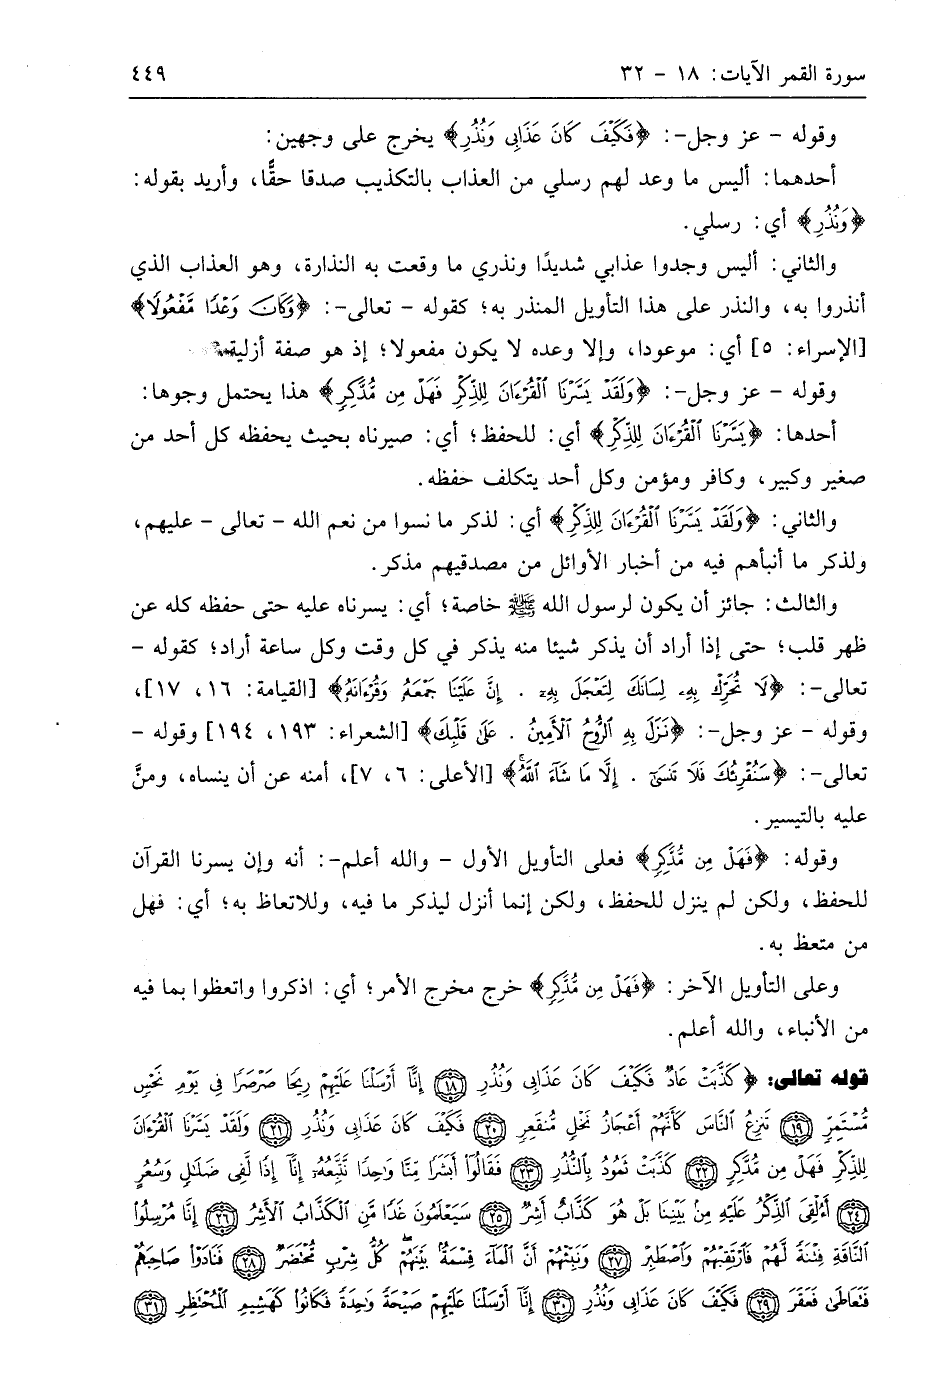 سورة القمر الآيات: ١٨ - ٣٢ ٤٤٩
وقوله - عز وجل-: ﴿فَكَيْفَ كَانَ عَذَابِي وَنُذُرِ﴾ يخرج على وجهين:
أحدهما: أليس ما وعد لهم رسلي من العذاب بالتكذيب صدقا حقًّا، وأريد بقوله:
﴿وَنُذُرِ﴾ أي: رسلي.
والثاني: أليس وجدوا عذابي شديدًا ونذري ما وقعت به النذارة، وهو العذاب الذي
أنذروا به، والنذر على هذا التأويل المنذر به؛ كقوله - تعالى-: ﴿وَكَانَ وَعْدًا مَّفْعُولًا﴾
[الإسراء: ٥] أي: موعودا، وإلا وعده لا يكون مفعولا؛ إذ هو صفة أزلية.
وقوله - عز وجل-: ﴿وَلَقَدْ يَسَّرْنَا الْقُرْءَانَ لِلذِّكْرِ فَهَلْ مِن مُّدَّكِرٍ﴾ هذا يحتمل وجوها:
أحدها: ﴿يَسَّرْنَا الْقُرْءَانَ لِلذِّكْرِ﴾ أي: للحفظ؛ أي: صيرناه بحيث يحفظه كل أحد من
صغير وكبير، وكافر ومؤمن وكل أحد يتكلف حفظه.
والثاني: ﴿وَلَقَدْ يَسَّرْنَا الْقُرْءَانَ لِلذِّكْرِ﴾ أي: لذكر ما نسوا من نعم الله - تعالى - عليهم،
ولذكر ما أنبأهم فيه من أخبار الأوائل من مصدقيهم مذكر.
والثالث: جائز أن يكون لرسول الله ﷺ خاصة؛ أي: يسرناه عليه حتى حفظه كله عن
ظهر قلب؛ حتى إذا أراد أن يذكر شيئا منه يذكر في كل وقت وكل ساعة أراد؛ كقوله -
تعالى-: ﴿لَا تُحَرِّكْ بِهِۦ لِسَانَكَ لِتَعْجَلَ بِهِۦٓ . إِنَّ عَلَيْنَا جَمْعَهُۥ وَقُرْءَانَهُۥ﴾ [القيامة: ١٦، ١٧]،
وقوله - عز وجل-: ﴿نَزَلَ بِهِ الرُّوحُ الْأَمِينُ . عَلَىٰ قَلْبِكَ﴾ [الشعراء: ١٩٣، ١٩٤] وقوله -
تعالى-: ﴿سَنُقْرِئُكَ فَلَا تَنسَىٰٓ . إِلَّا مَا شَآءَ اللَّهُ﴾ [الأعلى: ٦، ٧]، أمنه عن أن ينساه، ومنَّ
عليه بالتيسير.
وقوله: ﴿فَهَلْ مِن مُّدَّكِرٍ﴾ فعلى التأويل الأول - والله أعلم-: أنه وإن يسرنا القرآن
للحفظ، ولكن لم ينزل للحفظ، ولكن إنما أنزل ليذكر ما فيه، وللاتعاظ به؛ أي: فهل
من متعظ به.
وعلى التأويل الآخر: ﴿فَهَلْ مِن مُّدَّكِرٍ﴾ خرج مخرج الأمر؛ أي: اذكروا واتعظوا بما فيه
من الأنباء، والله أعلم.
قوله تعالى: ﴿كَذَّبَتْ عَادٌ فَكَيْفَ كَانَ عَذَابِي وَنُذُرِ (١٨) إِنَّآ أَرْسَلْنَا عَلَيْهِمْ رِيحًا صَرْصَرًا فِي يَوْمِ نَحْسٍ
مُّسْتَمِرٍّ (١٩) تَنزِعُ النَّاسَ كَأَنَّهُمْ أَعْجَازُ نَخْلٍ مُّنقَعِرٍ (٢٠) فَكَيْفَ كَانَ عَذَابِي وَنُذُرِ (٢١) وَلَقَدْ يَسَّرْنَا الْقُرْءَانَ
لِلذِّكْرِ فَهَلْ مِن مُّدَّكِرٍ (٢٢) كَذَّبَتْ ثَمُودُ بِالنُّذُرِ (٢٣) فَقَالُوٓا۟ أَبَشَرًا مِّنَّا وَٰحِدًا نَّتَّبِعُهُۥٓ إِنَّآ إِذًا لَّفِي ضَلَٰلٍ وَسُعُرٍ
(٢٤) أَءُلْقِيَ الذِّكْرُ عَلَيْهِ مِنۢ بَيْنِنَا بَلْ هُوَ كَذَّابٌ أَشِرٌ (٢٥) سَيَعْلَمُونَ غَدًا مَّنِ الْكَذَّابُ الْأَشِرُ (٢٦) إِنَّا مُرْسِلُوا۟
النَّاقَةِ فِتْنَةً لَّهُمْ فَارْتَقِبْهُمْ وَاصْطَبِرْ (٢٧) وَنَبِّئْهُمْ أَنَّ الْمَآءَ قِسْمَةٌۢ بَيْنَهُمْ كُلُّ شِرْبٍ مُّحْتَضَرٌ (٢٨) فَنَادَوْا۟ صَاحِبَهُمْ
فَتَعَاطَىٰ فَعَقَرَ (٢٩) فَكَيْفَ كَانَ عَذَابِي وَنُذُرِ (٣٠) إِنَّآ أَرْسَلْنَا عَلَيْهِمْ صَيْحَةً وَٰحِدَةً فَكَانُوا۟ كَهَشِيمِ الْمُحْتَظِرِ (٣١)